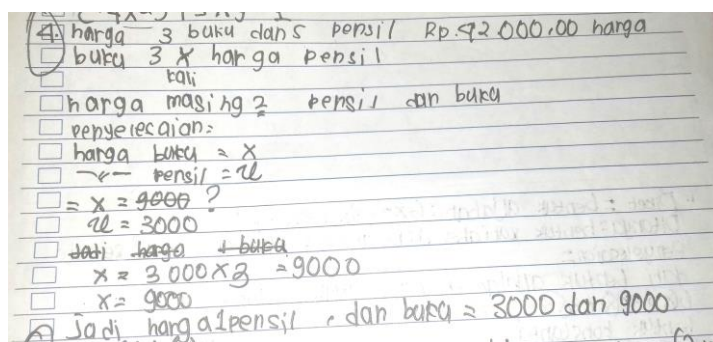 4. harga 3 buku dan 5 pensil Rp.42.000,00 harga
buku 3 x harga pensil
kali
harga masing 2 pensil dan buku
penyelesaian:
harga buku = x
pensil = u
= x = 9000 ?
u = 3000
Jadi harga 1 buku
x = 3000 x 3 = 9000
x = 9000
Jadi harga 1 pensil, dan buku = 3000 dan 9000